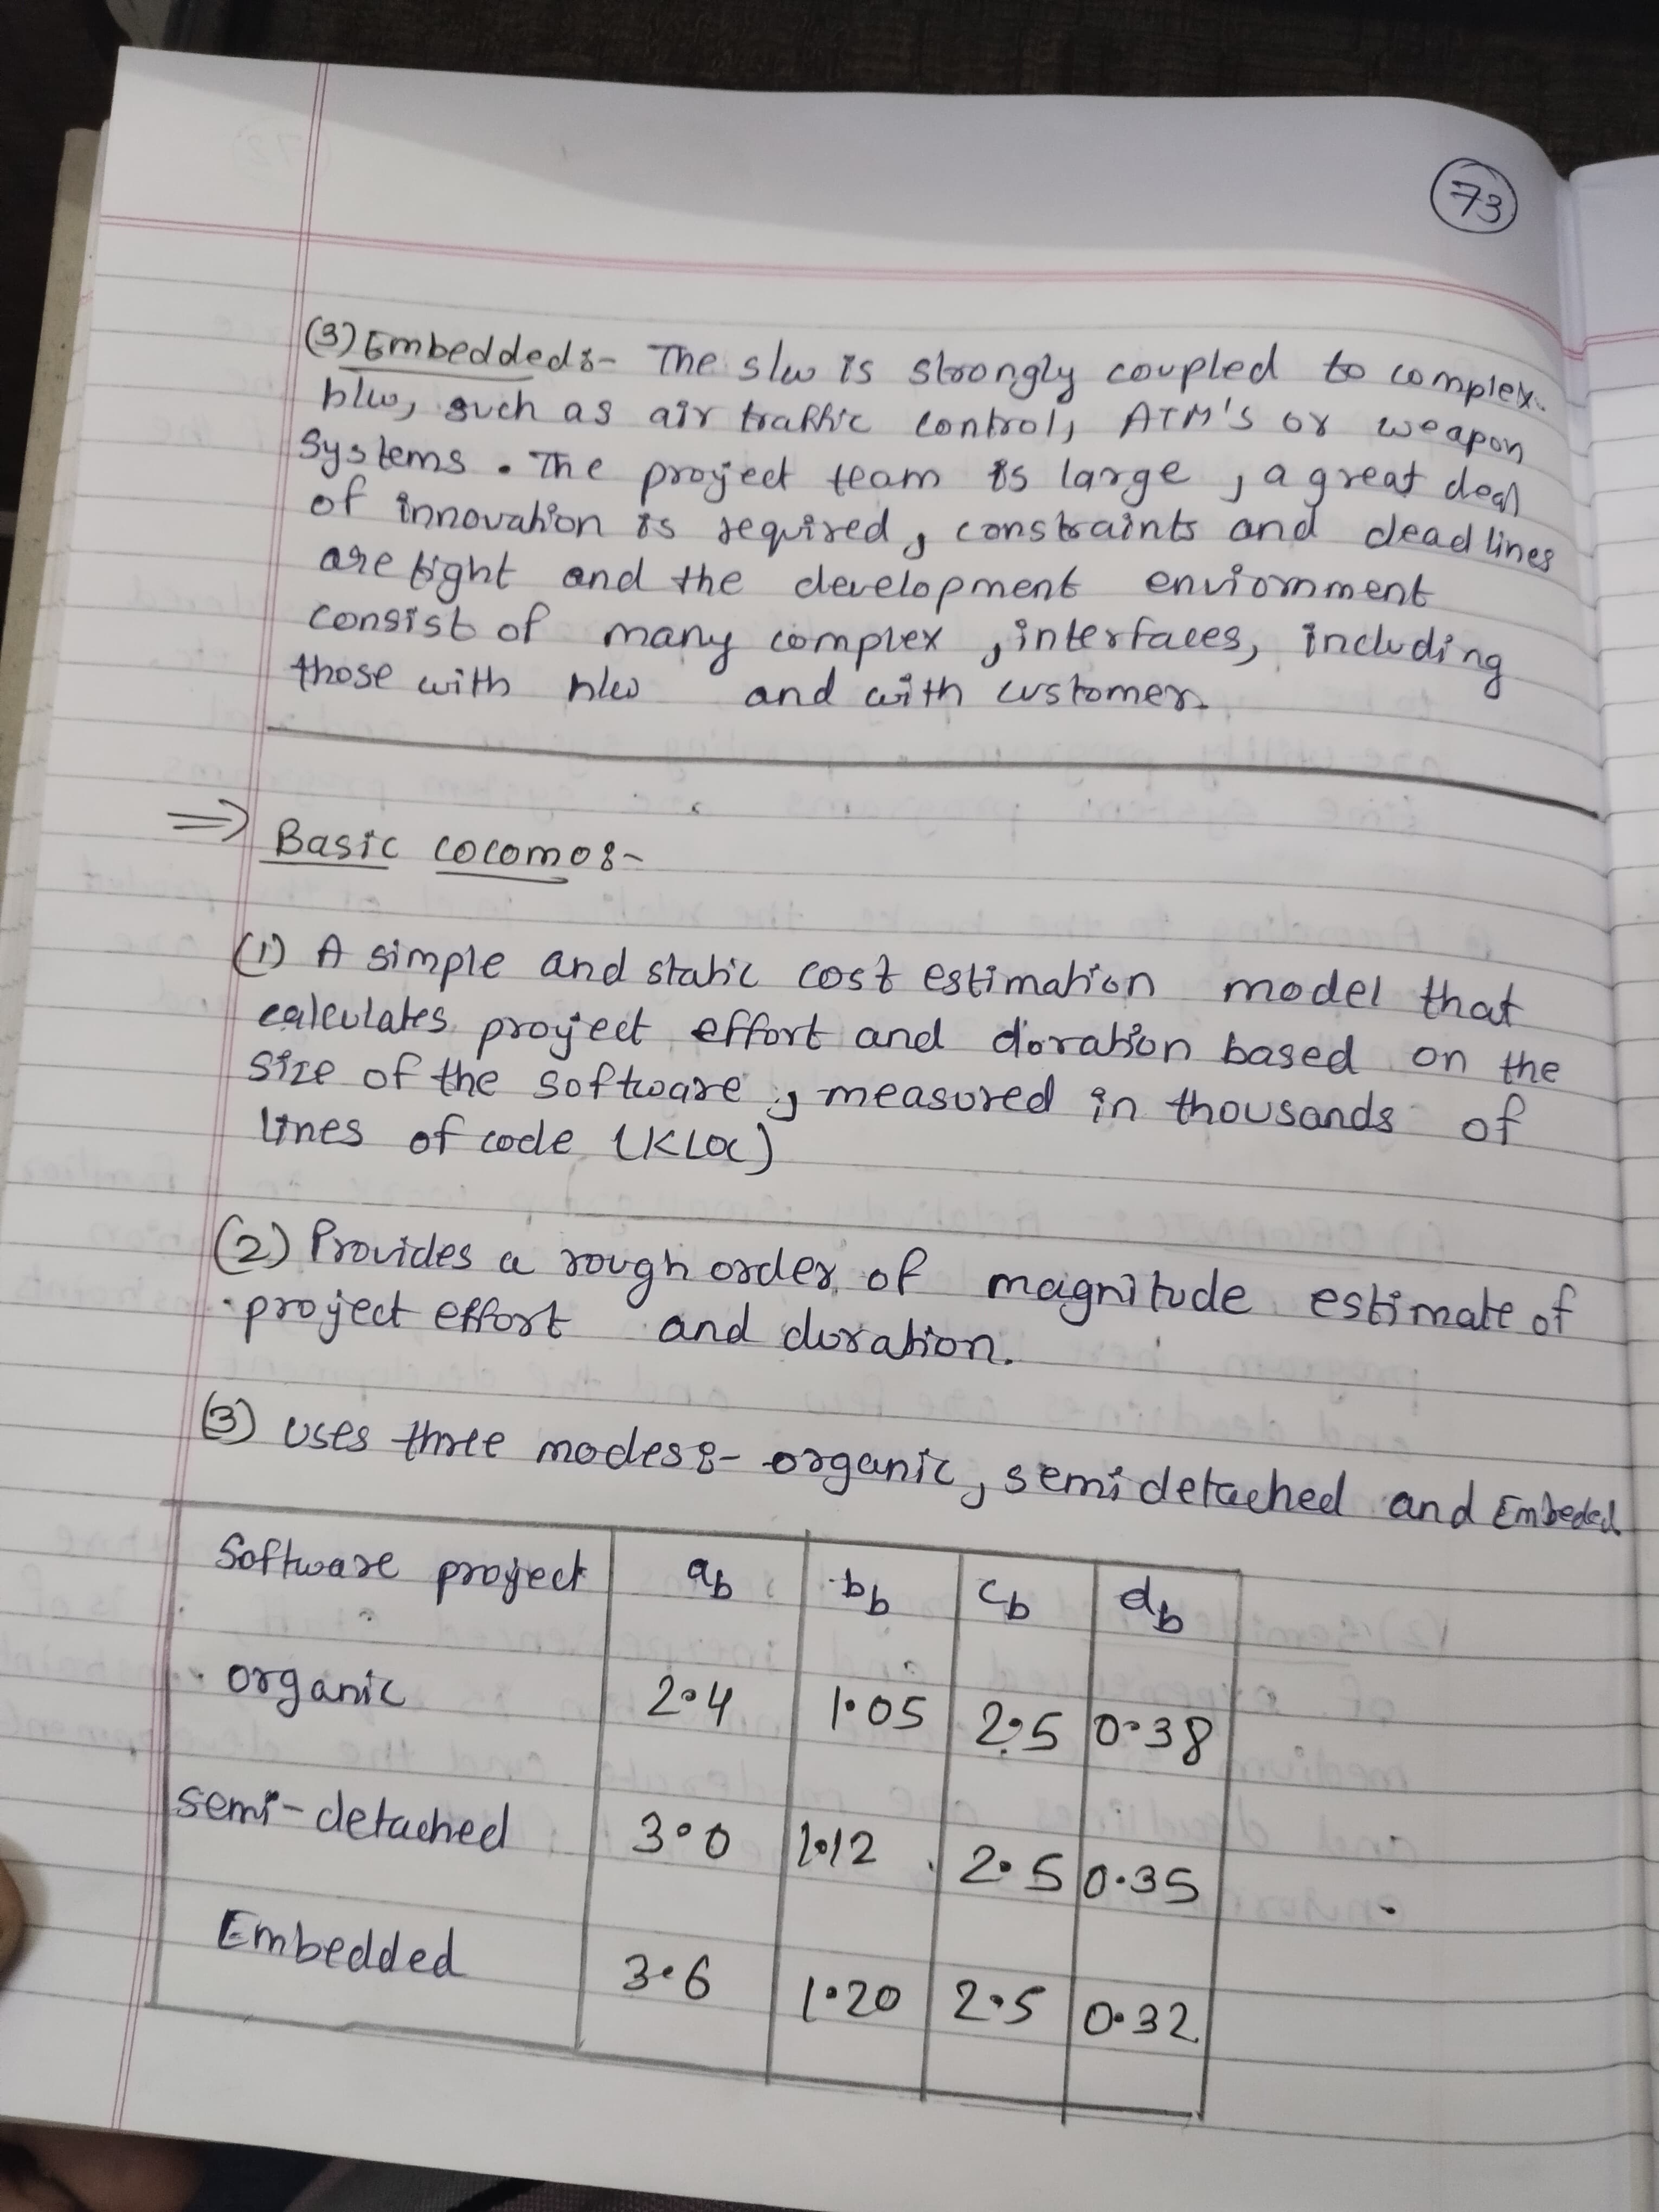 73
(3) Embedded:- The s/w is strongly coupled to complex
h/w, such as air traffic control, ATM's or weapon
Systems. The project team is large, a great deal
of innovation is required, constraints and deadlines
are tight and the development enviornment
consist of many complex, interfaces, including
those with h/w and with customer.
⇒ Basic COCOMO:-
(1) A simple and static cost estimation model that
calculates project effort and duration based on the
size of the software, measured in thousands of
lines of code (KLOC)
(2) Provides a rough order of magnitude estimate of
project effort and duration.
(3) Uses three modes:- organic, semidetached and Embeded.
Software project ab bb cb db
organic 2.4 1.05 2.5 0.38
semi-detached 3.0 1.12 2.5 0.35
Embedded 3.6 1.20 2.5 0.32